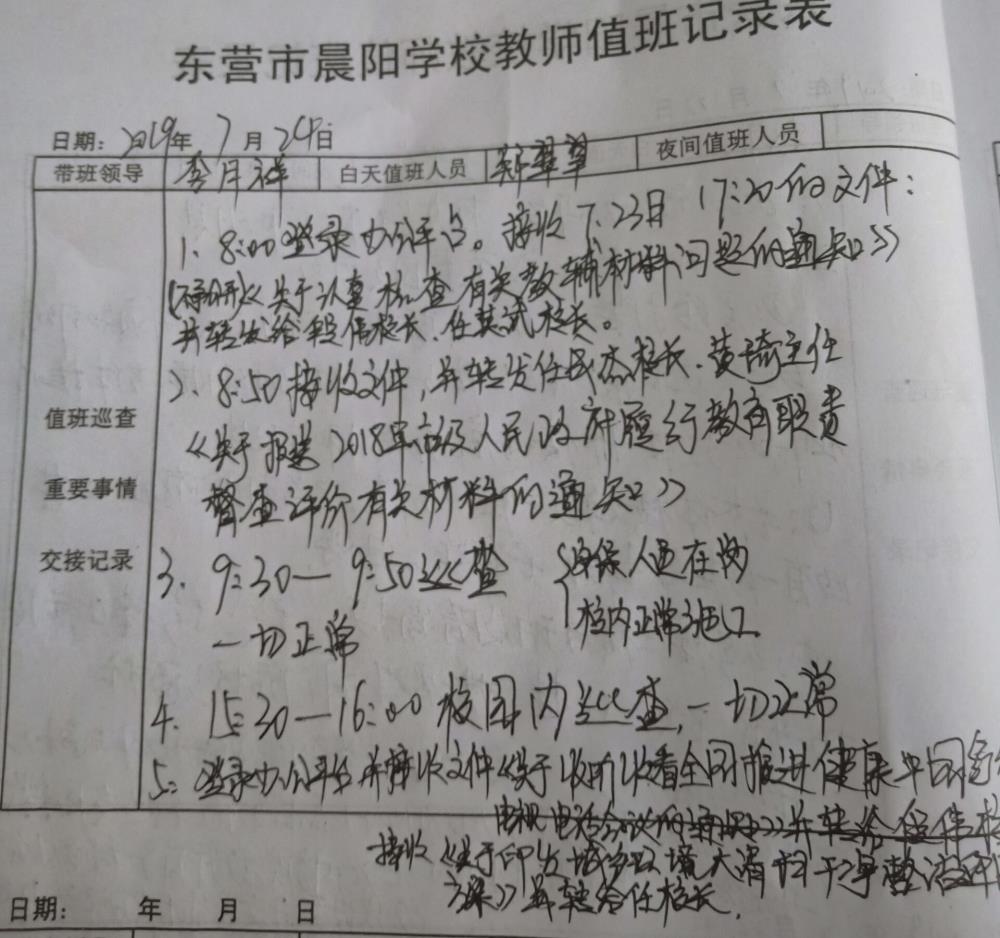 东营市晨阳学校教师值班记录表
日期：2019年 7月 24日
带班领导 李月祥 白天值班人员 郑翠翠 夜间值班人员
值班巡查
重要事情
交接记录
1. 8:00登录办公平台。接收7.23日 17:20的文件：
《关于认真核查有关教辅材料问题的通知》
并转发给段伟校长、任英武校长。
2. 8:50接收文件，并转发任民杰校长、黄琦主任
《关于报送2018年市级人民政府履行教育职责
督查评价有关材料的通知》
3. 9:30—9:50巡查 { 安保人员在岗
一切正常 校内正常施工
4. 15:30—16:00校园内巡查，一切正常
5. 登录办公平台并接收文件《关于收听收看全国推进健康中国
电视电话会议的通知》并转给段伟校
接收《关于印发城乡环境大清扫干净整治
》并转给任校长.
日期： 年 月 日